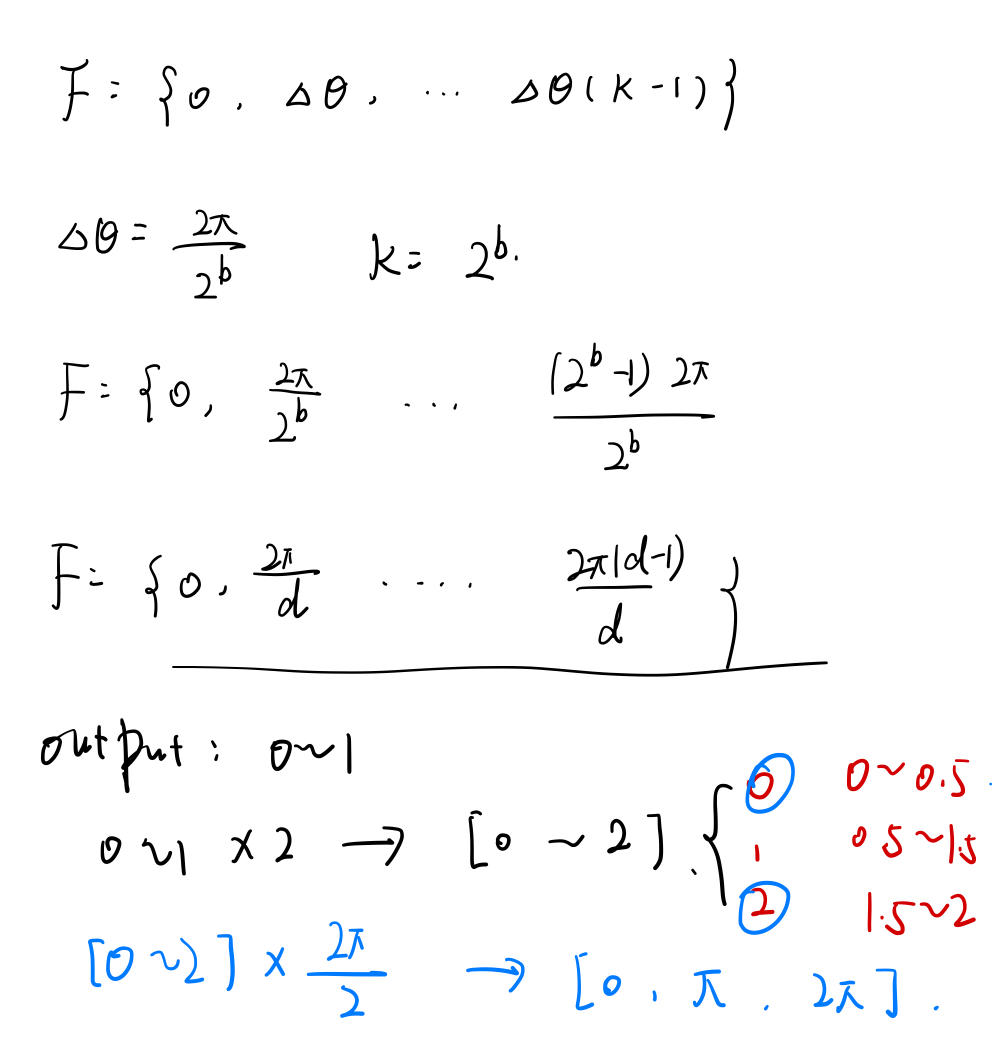 F = {0, Δθ, ... Δθ(K-1)}
Δθ = 2π/2^b K = 2^b.
F = {0, 2π/2^b ... (2^b-1) 2π/2^b
F = {0, 2π/d .... 2π(d-1)/d}
output : 0~1
0~1 × 2 → [0 ~ 2]. { 0 0~0.5
1 0.5~1.5
2 1.5~2
[0~2] × 2π/2 → [0, π, 2π].